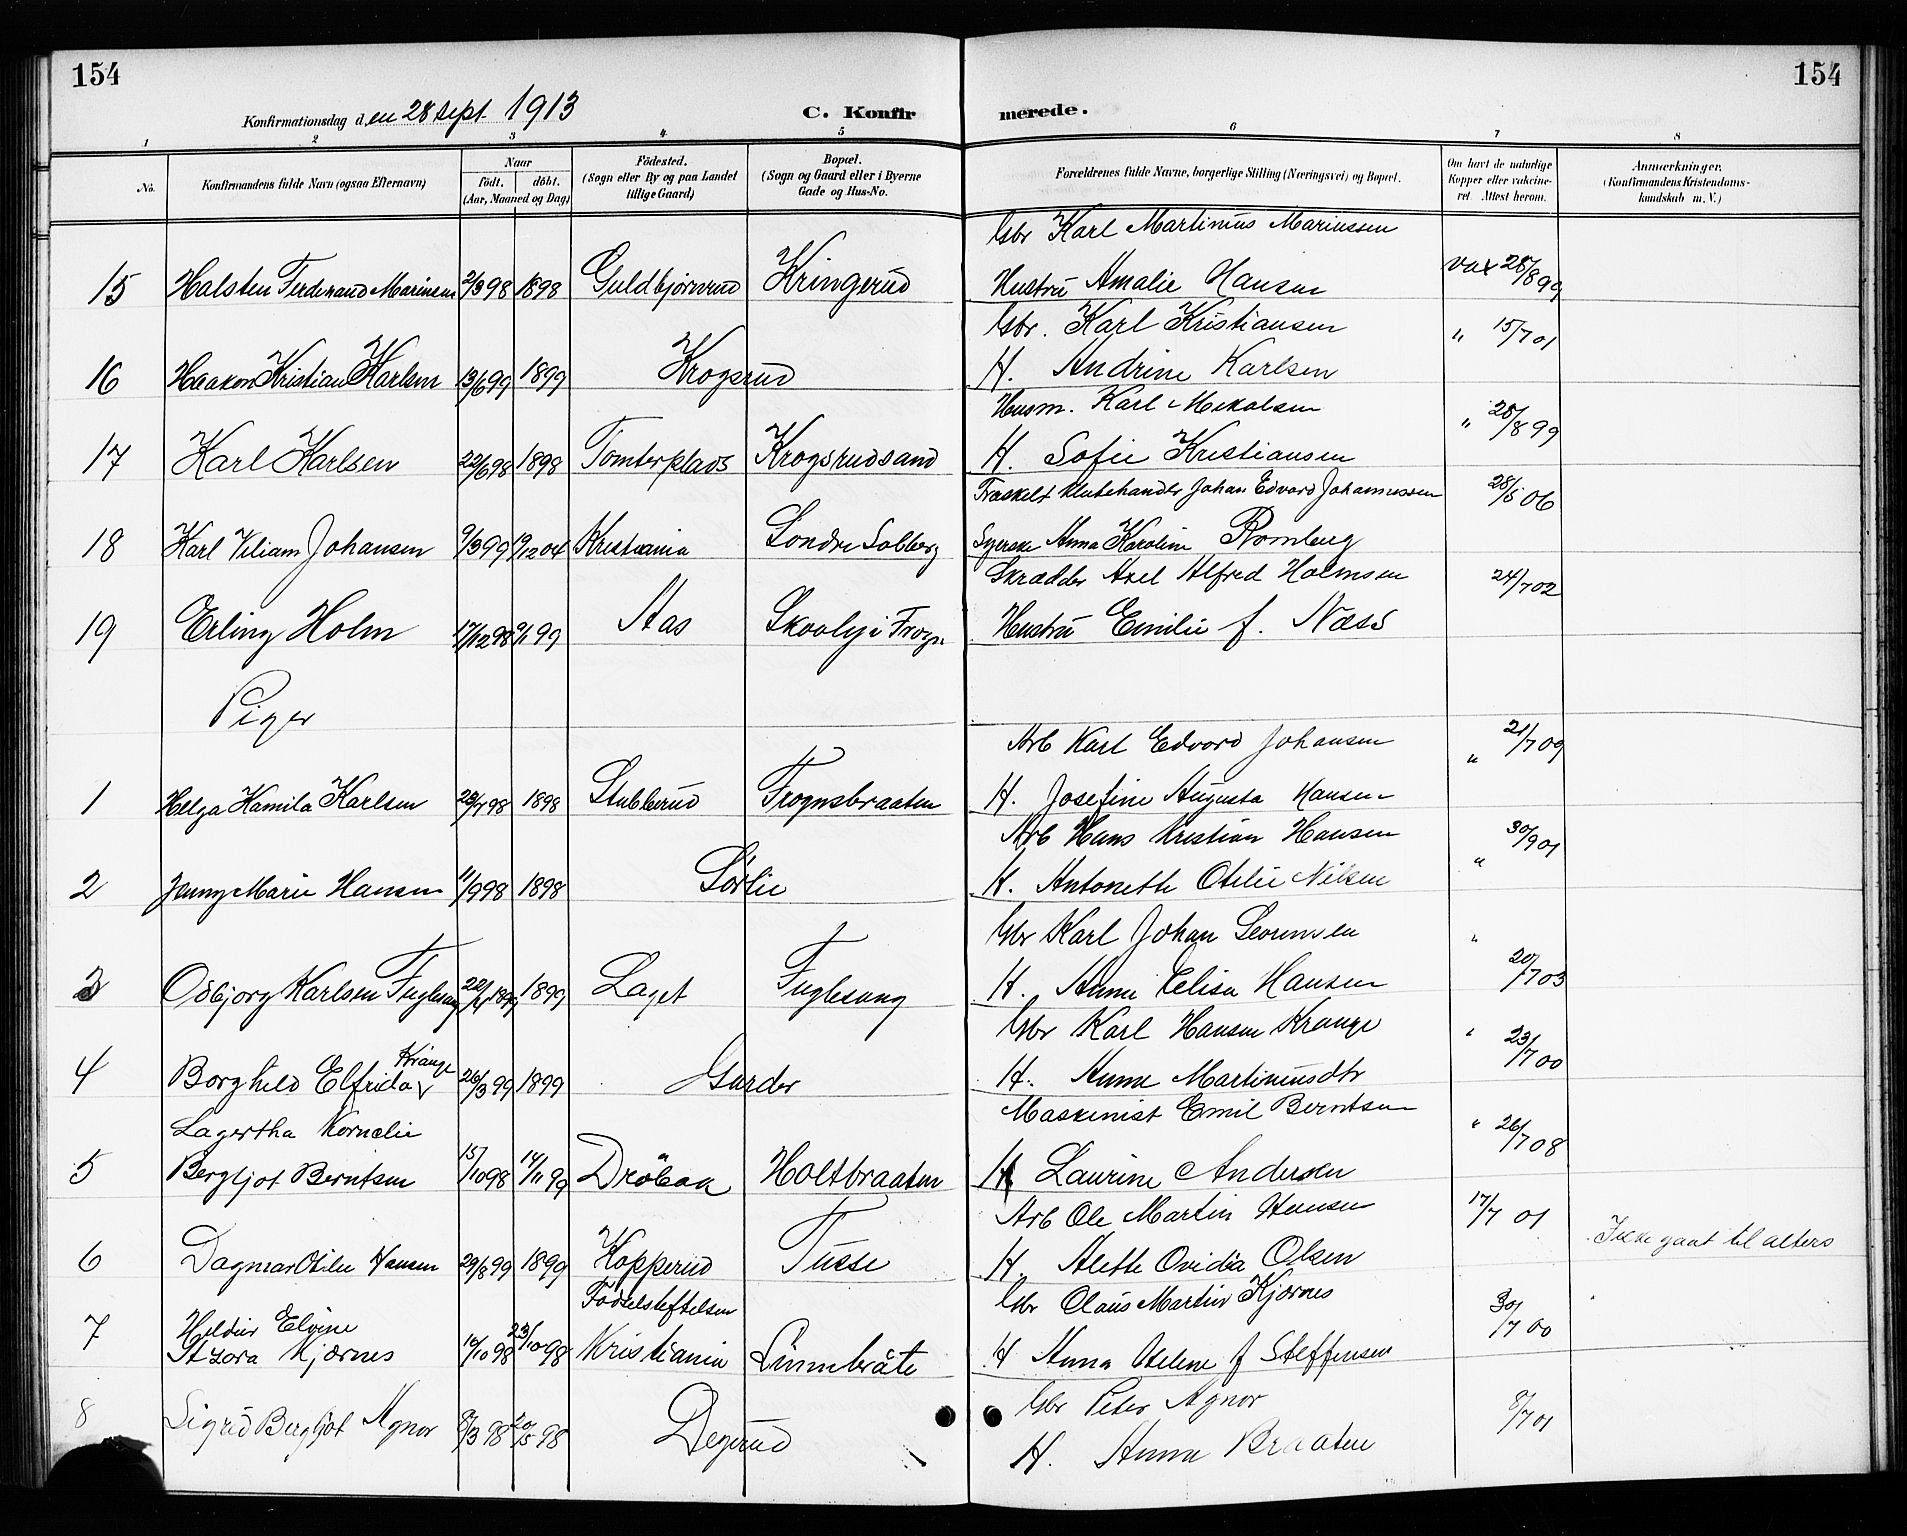 154
154
Konfirmationsdag den 28 sept. 1913
C. Konfir
merede.
1 2 3 4 5 6 7 8
No.
Konfirmandens fulde Navn (ogsaa Efternavn)
Naar
födt. döbt.
(Aar, Maaned og Dag)
Födested.
(Sogn eller By og paa Landet
tillige Gaard)
Bopæl.
(Sogn og Gaard eller i Byerne
Gade og Hus-No.
Forældrenes fulde Navne, borgerlige Stilling (Næringsvei) og Bopæl.
Om havt de naturlige
Kopper eller vakcine-
ret. Attest herom.
Anmærkninger.
(Konfirmandens Kristendoms-
kundskab m. V.)
Gbr Karl Martinius Mariussen
15 Halsten Ferdenand Mariusen 2/3 98 1898 Guldbjørnrud Kringerud Hustru Amalie Hansen vax 28/8 99
Gbr. Karl Kristiansen " 15/7 01
16 Haakon Kristian Karlsen 13/6 99 1899 Krogsrud H. Andrine Karlsen
Husm. Karl Mekalsen " 28/8 99
17 Karl Karlsen 22/6 98 1898 Tomterplads Krogsrudsand H. Sofie Kristiansen
Fraskelt Klutehandler Johan Edvard Johannessen 28/5 06
18 Karl Viliam Johansen 9/3 99 9/12 04 Kristiania Søndre Solberg Syerske Anna Karoline Romberg
Skrædder Axel Alfred Holmsen 24/7 02
19 Erling Holm 17/12 98 9/1 99 Aas Skovly i Frogn Hustru Emilie f. Næss
Piger
Arb Karl Edvard Johansen " 21/7 09
1 Helga Kamila Karlsen 23/7 98 1898 Stubberud Frognsbraaten H. Josefine Augusta Hansen
Arb Hans Kristian Hansen " 30/9 01
2 Jenny Marie Hansen 11/9 98 1898 Sørlie H. Antonette Otilie Nilsen
Gbr Karl Johan Sørensen "
3 Odbjorg Karlsen Fuglesang 22/4 1899 1899 Laget Fuglesang H. Anne Elisa Hansen 20/7 03
Gbr Karl Hansen Krange " 23/7 00
4 Borghild Elfrida Krange 26/3 99 1899 Garder H. Anna Martinusdtr
Maskinist Emil Berntsen " 26/7 08
Lagertha Kornelie
5 Bergljot Berntsen 15/10 98 14/11 99 Drøbak Holtbraaten H Laurine Andersen
Arb Ole Martin Hansen 17/7 01
6 Dagmar Otilie Hansen 29/8 99 1899 Kopperud Tusse H. Alette Ovidia Olsen Ikke gaat til alters
Gbr Claus Martin Kjærnes 30/7 00
Fødselstiftelsen
Heldur Elvine
7 Atzora Kjærnes 14/10 98 23/10 98 Kristiania Linnebråte H Anna Helene f Steffensen
Gbr Peter Agnor 8/7 01
8 Sigrid Bergljot Agnor 8/3 98 20/5 98 Degerud H. Anna Braaten